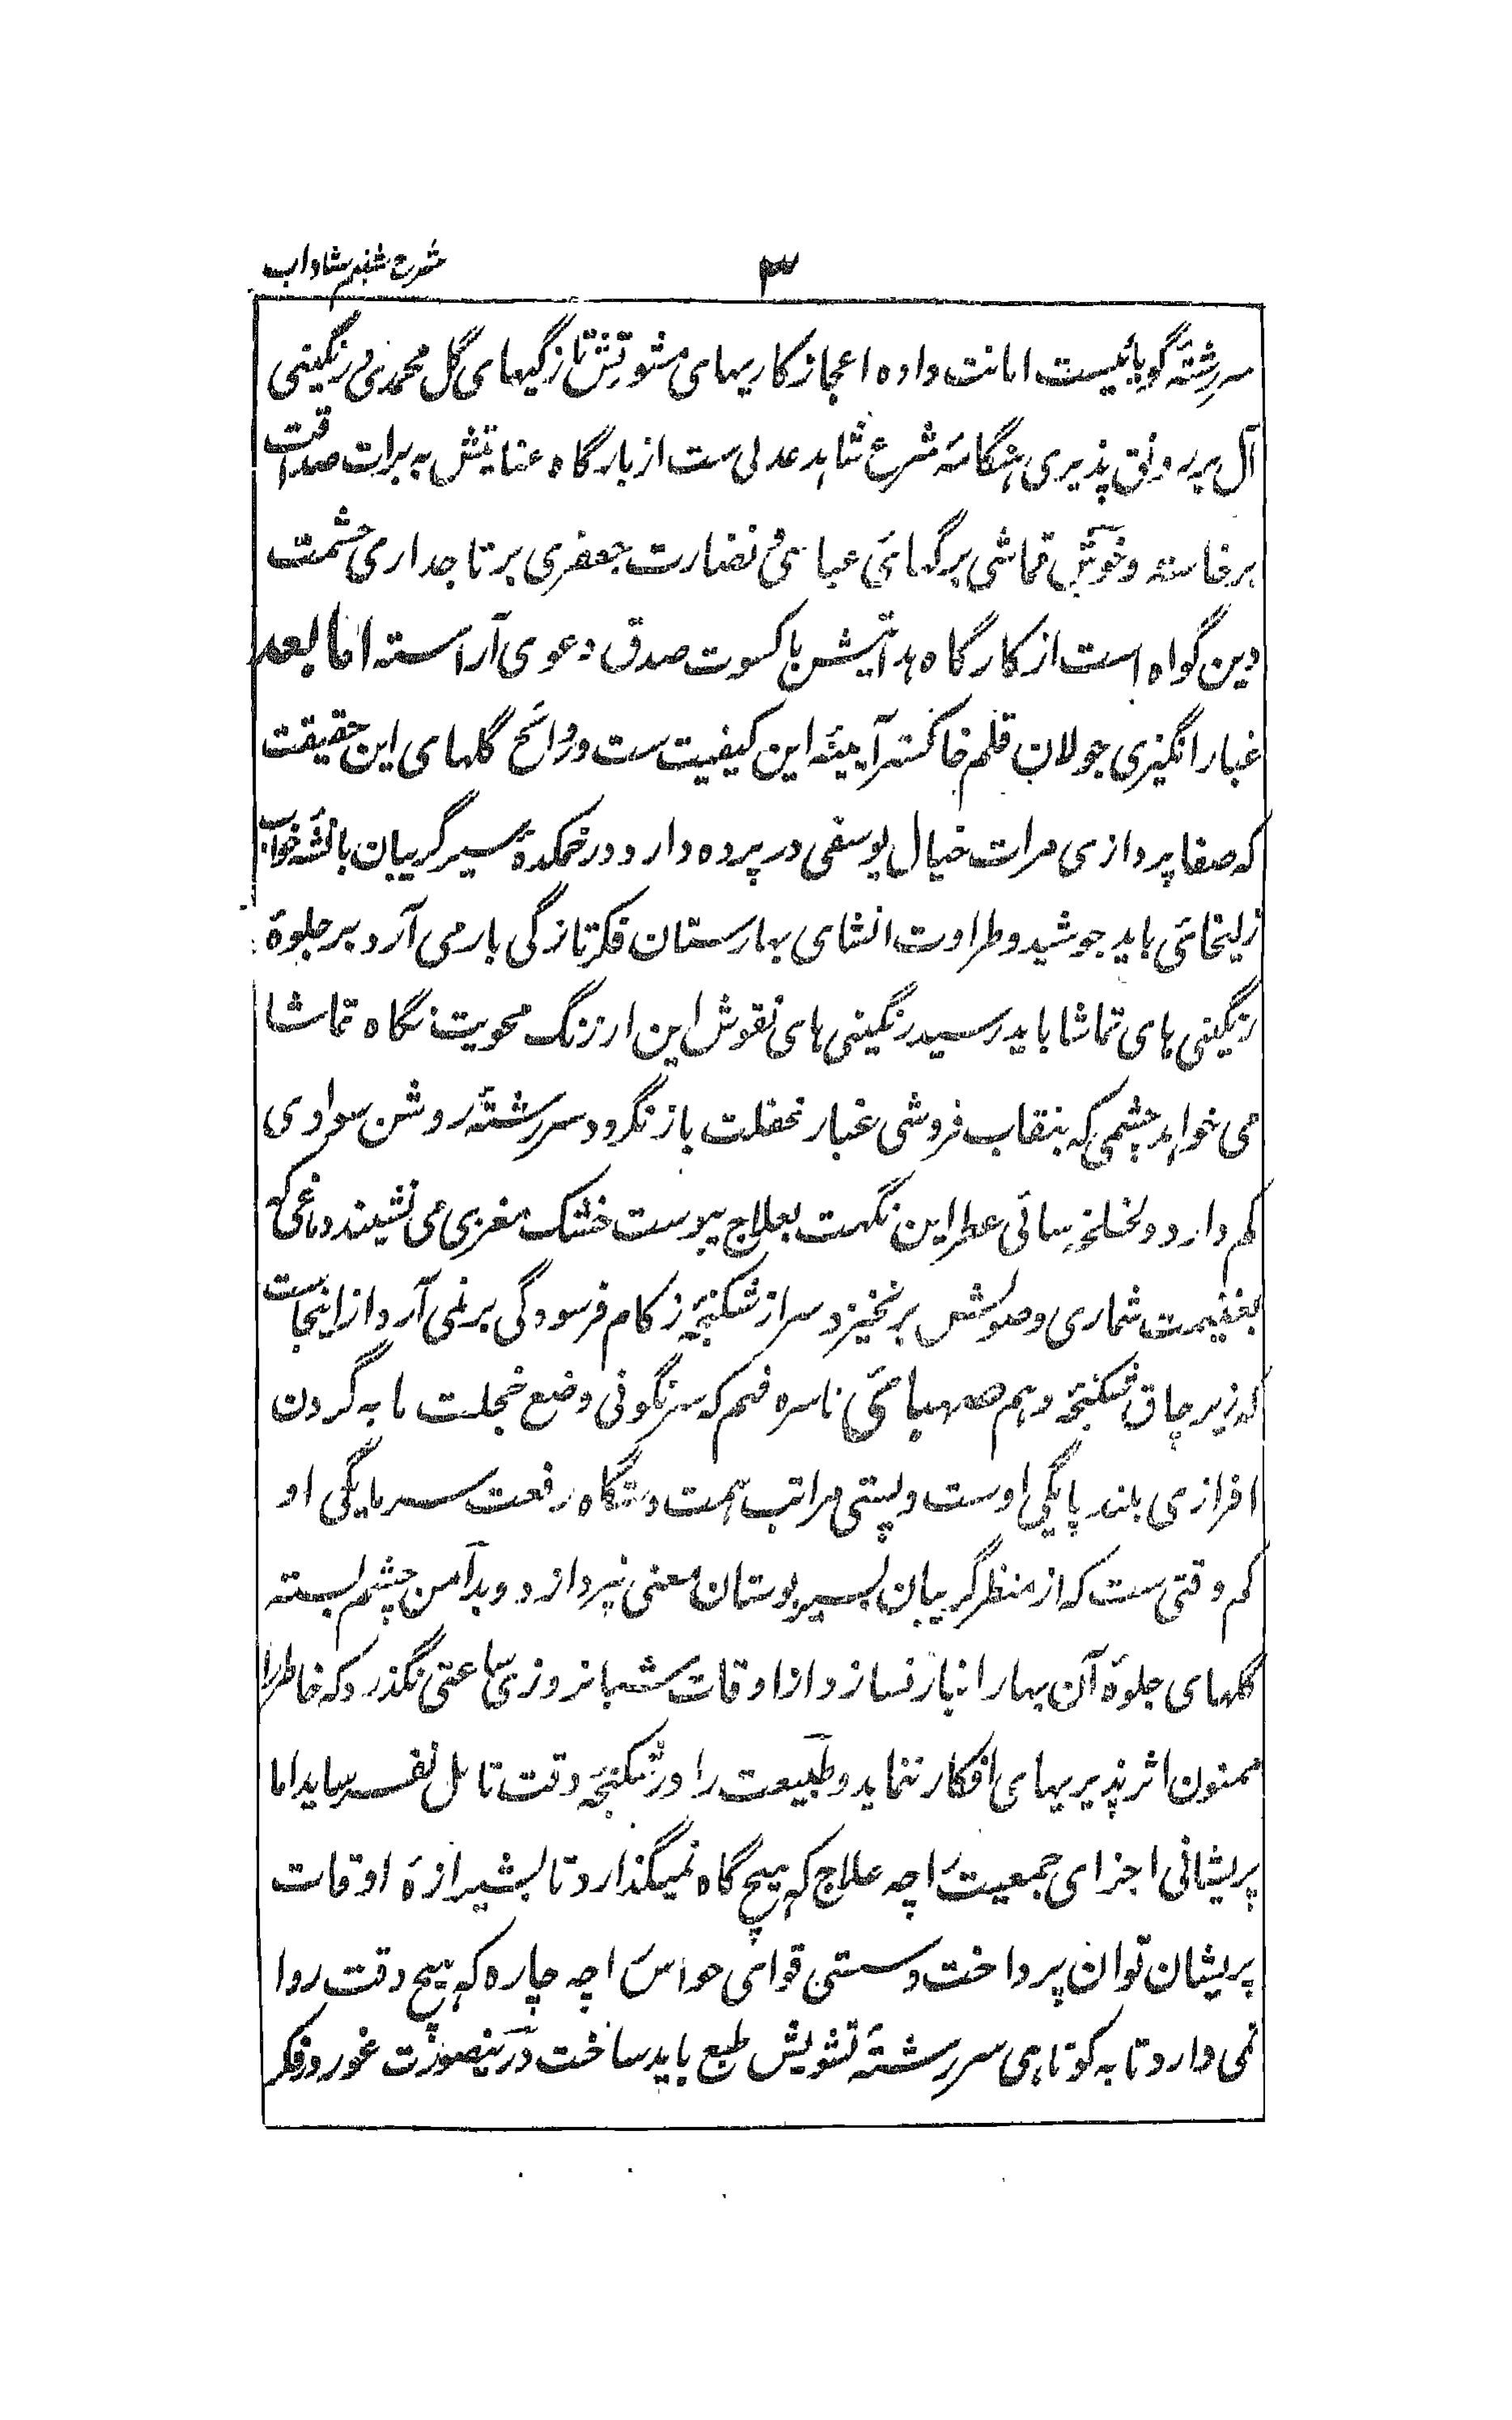 ۳
شرح شبنم شاداب
سررشتهٔ گویائیست امانت داده اعجاز کاریهای مشورتش تازگیهای گل محمدی رنگینی
آل بر رونق پذیری هنگامهٔ شرع شاهد عدلی ست از بارگاه عنایتش به برات صداقت
برخاسته و خوش قماشی برگهای عباسی نضارت جعفری بر تاجداری حشمت
دین گواه است از کارگاه هدایتش با کسوت صدق دعوی آراسته اما بعد
غبار انگیزی جولان قلم خاکستر آیینهٔ این کیفیت ست و روائح گلهای این حقیقت
که صفا پردازی مرات خیال یوسفی در پرده دارد و در خمکدهٔ سیر گریبان با نشهٔ خواب
زلیخائی باید جوشید و طراوت انشای بهارستان فکر تازگی بار می آرد بر جلوهٔ
رنگینی های تماشا باید رسید رنگینی های نقوش این ارژنگ محویت نگاه تماشا
می خواهد چشمی که بنقاب فروشی غبار غفلت باز نگردد سررشتهٔ روشن سوادی
کم دارد و لخلخه سائی عطر این نگهت بعلاج یبوست خشک مغزی می نشیند دماغی که
بغنیمت شماری وصولش برنخیزد سر از شکنجهٔ زکام فرسودگی بر نمی آرد از اینجاست
که زیر چاق شکنجهٔ وهم صهبائی ناسره فهم که سرنگونی وضع خجلت ما به گردن
افرازی بلند پایگی اوست و پستی مراتب همت دستگاه رفعت سرمایگی او
کم وقتی ست که از منظر گریبان بسیر بوستان معنی نپردازد و بدامن چشم بسته
گلهای جلوهٔ آن بهار را نیاز نسازد از اوقات شبانروزی ساعتی نگذرد که خاطر را
ممنون اثر پذیریهای افکار ننماید و طبیعت را در شکنجهٔ دقت تامل نفرساید اما
پریشانی اجزای جمعیت را چه علاج که هیچ گاه نمیگذارد تا بشیرازهٔ اوقات
پریشان توان پرداخت و سستی قوای حواس را چه چاره که هیچ وقت روا
نمی دارد تا به کوتاهی سررشتهٔ تشویش طبع باید ساخت درینصورت غور و فکر